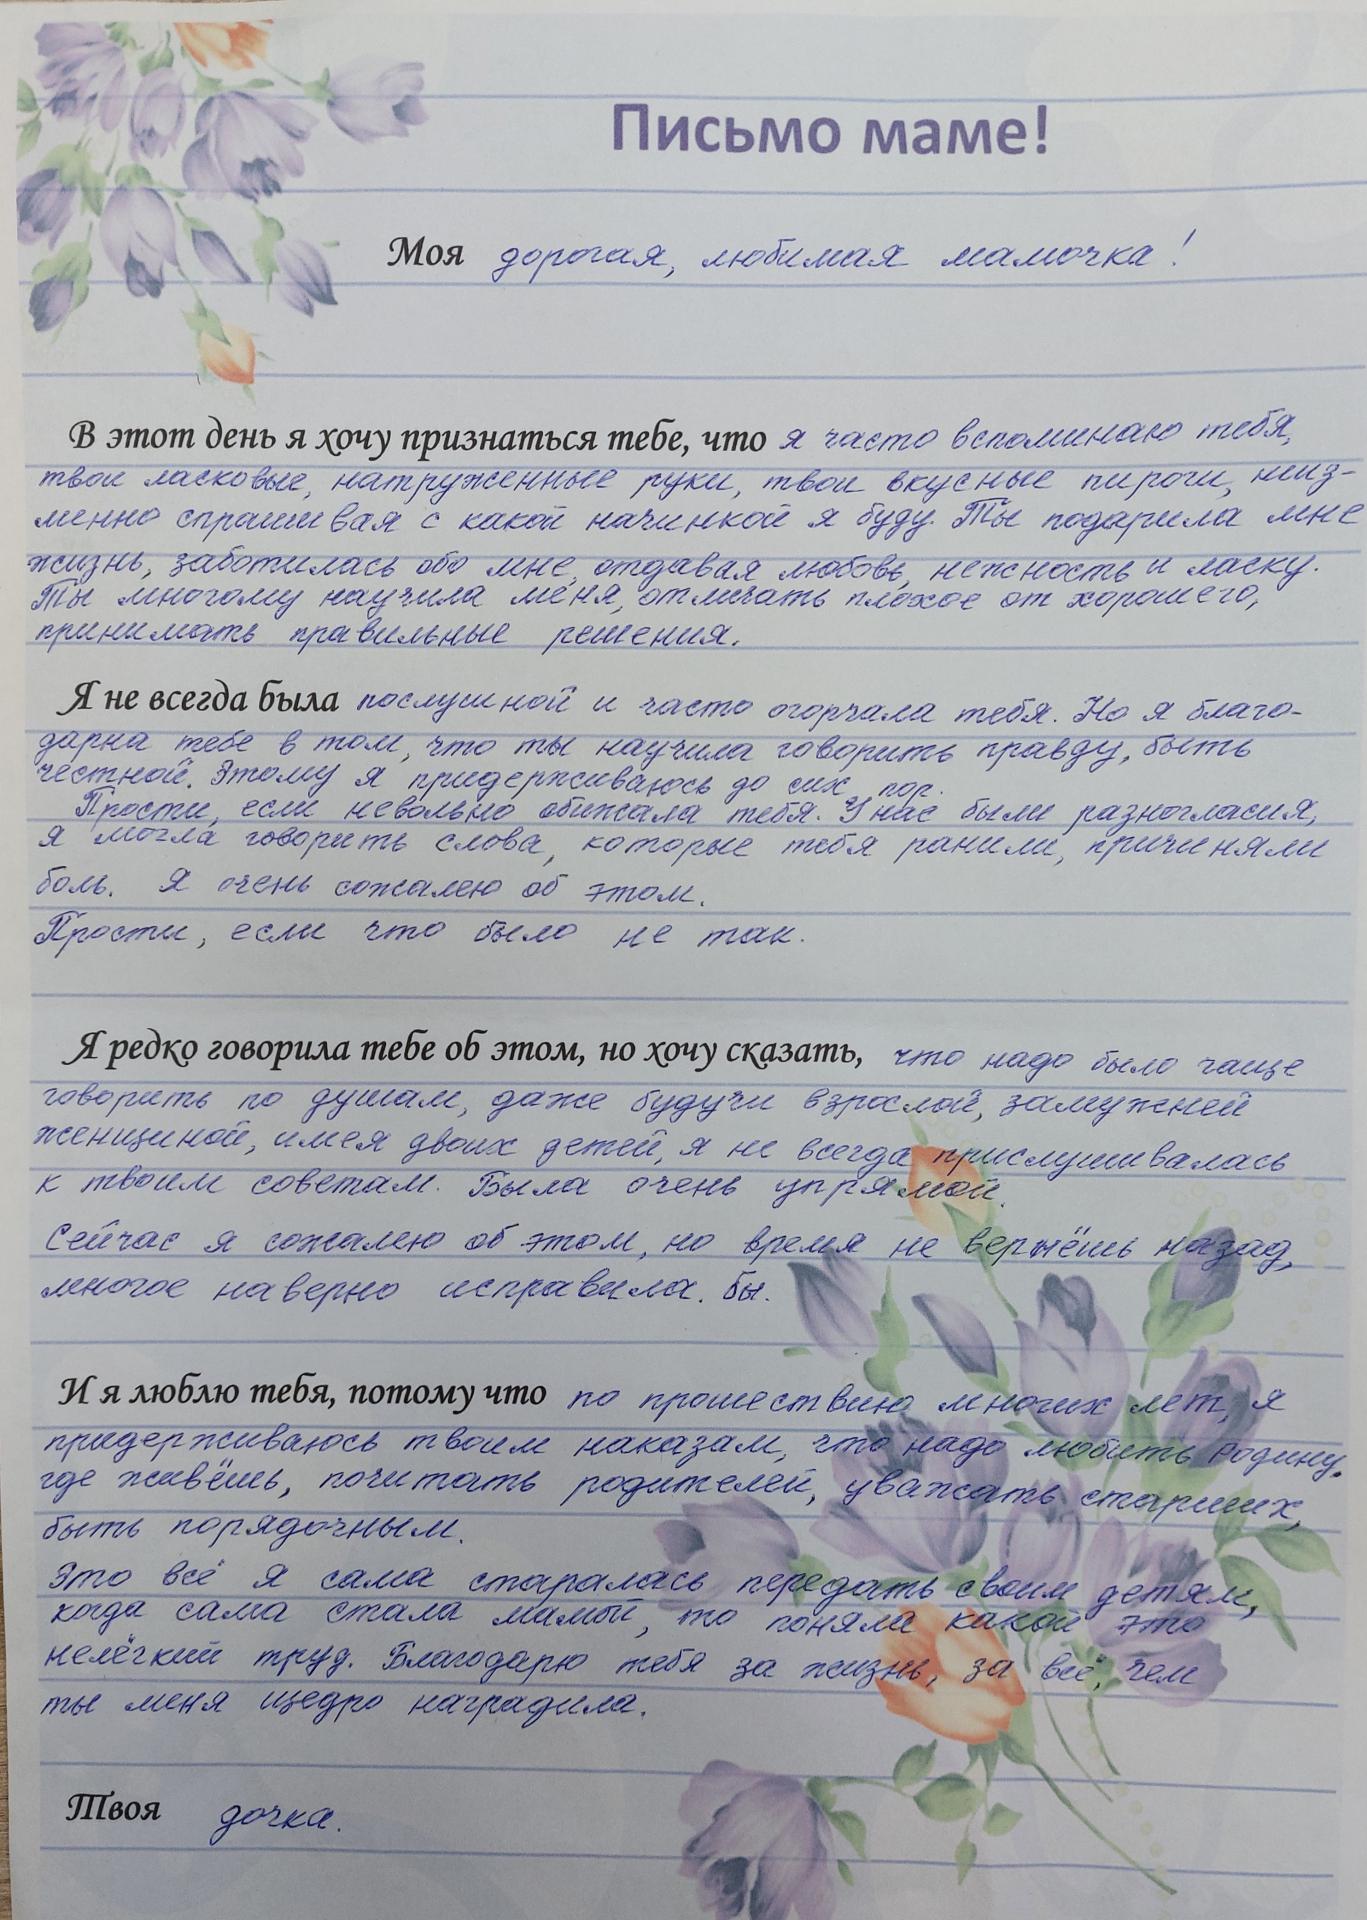 Письмо маме!
Моя дорогая, любимая мамочка!
В этот день я хочу признаться тебе, что я часто вспоминаю тебя,
твои ласковые, натруженные руки, твои вкусные пироги, неиз-
менно спрашивая с какой начинкой я буду. Ты подарила мне
жизнь, заботилась обо мне, отдавая любовь, нежность и ласку.
Ты многому научила меня, отличать плохое от хорошего,
принимать правильные решения.
Я не всегда была послушной и часто огорчала тебя. Но я благо-
дарна тебе в том, что ты научила говорить правду, быть
честной. Этому я придерживаюсь до сих пор.
Прости, если невольно обижала тебя. У нас были разногласия,
я могла говорить слова, которые тебя ранили, причиняли
боль. Я очень сожалею об этом.
Прости, если что было не так.
Я редко говорила тебе об этом, но хочу сказать, что надо было чаще
говорить по душам, даже будучи взрослой, замужней
женщиной, имея двоих детей, я не всегда прислушивалась
к твоим советам. Была очень упрямой.
Сейчас я сожалею об этом, но время не вернёшь назад,
многое наверно исправила. бы.
И я люблю тебя, потому что по прошествию многих лет, я
придерживаюсь твоим наказам, что надо любить Родину,
где живёшь, почитать родителей, уважать старших,
быть порядочным.
Это всё я сама старалась передать своим детям,
когда сама стала мамой, то поняла какой это
нелёгкий труд. Благодарю тебя за жизнь, за всё, чем
ты меня щедро наградила.
Твоя дочка.